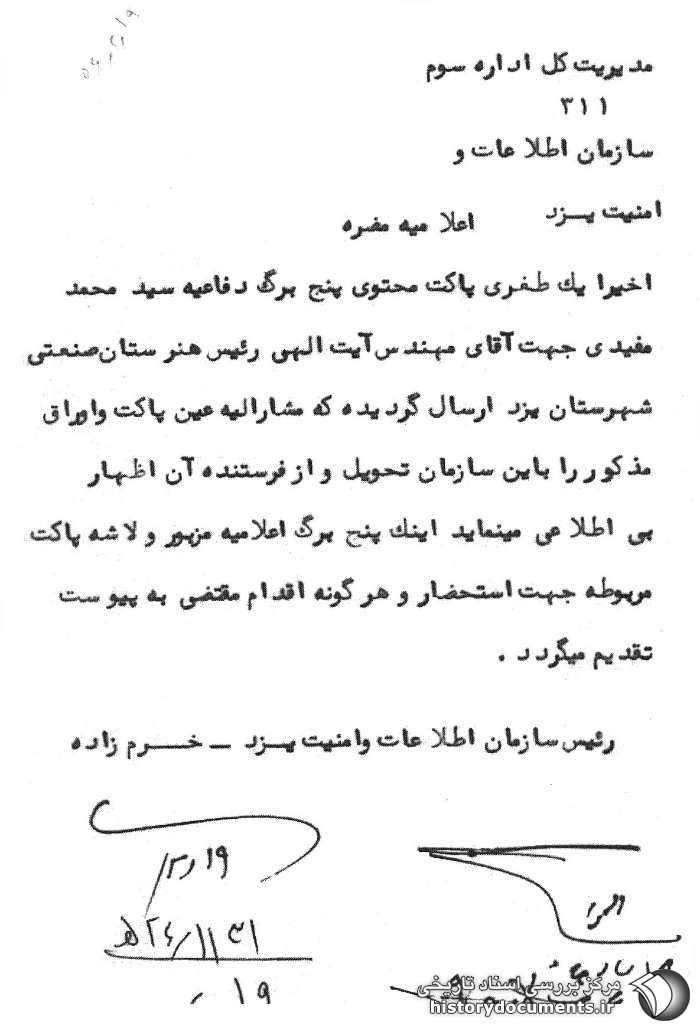 مدیریت کل اداره سوم
۳۱۱
سازمان اطلاعات و
امنیت یزد
اعلامیه مضره
اخیرا یك طغری پاکت محتوی پنج برگ دفاعیه سید محمد
مفیدی جهت آقای مهندس آیت الهی رئیس هنرستان صنعتی
شهرستان یزد ارسال گردیده که مشارالیه عین پاکت واوراق
مذکور را باین سازمان تحویل و از فرستنده آن اظهار
بی اطلاعی مینماید اینك پنج برگ اعلامیه مزبور و لاشه پاکت
مربوطه جهت استحضار و هرگونه اقدام مقتضی به پیوست
تقدیم میگردد .
رئیس سازمان اطلاعات وامنیت یزد — خرم زاده
مرکز بررسی اسناد تاریخی
historydocuments.ir